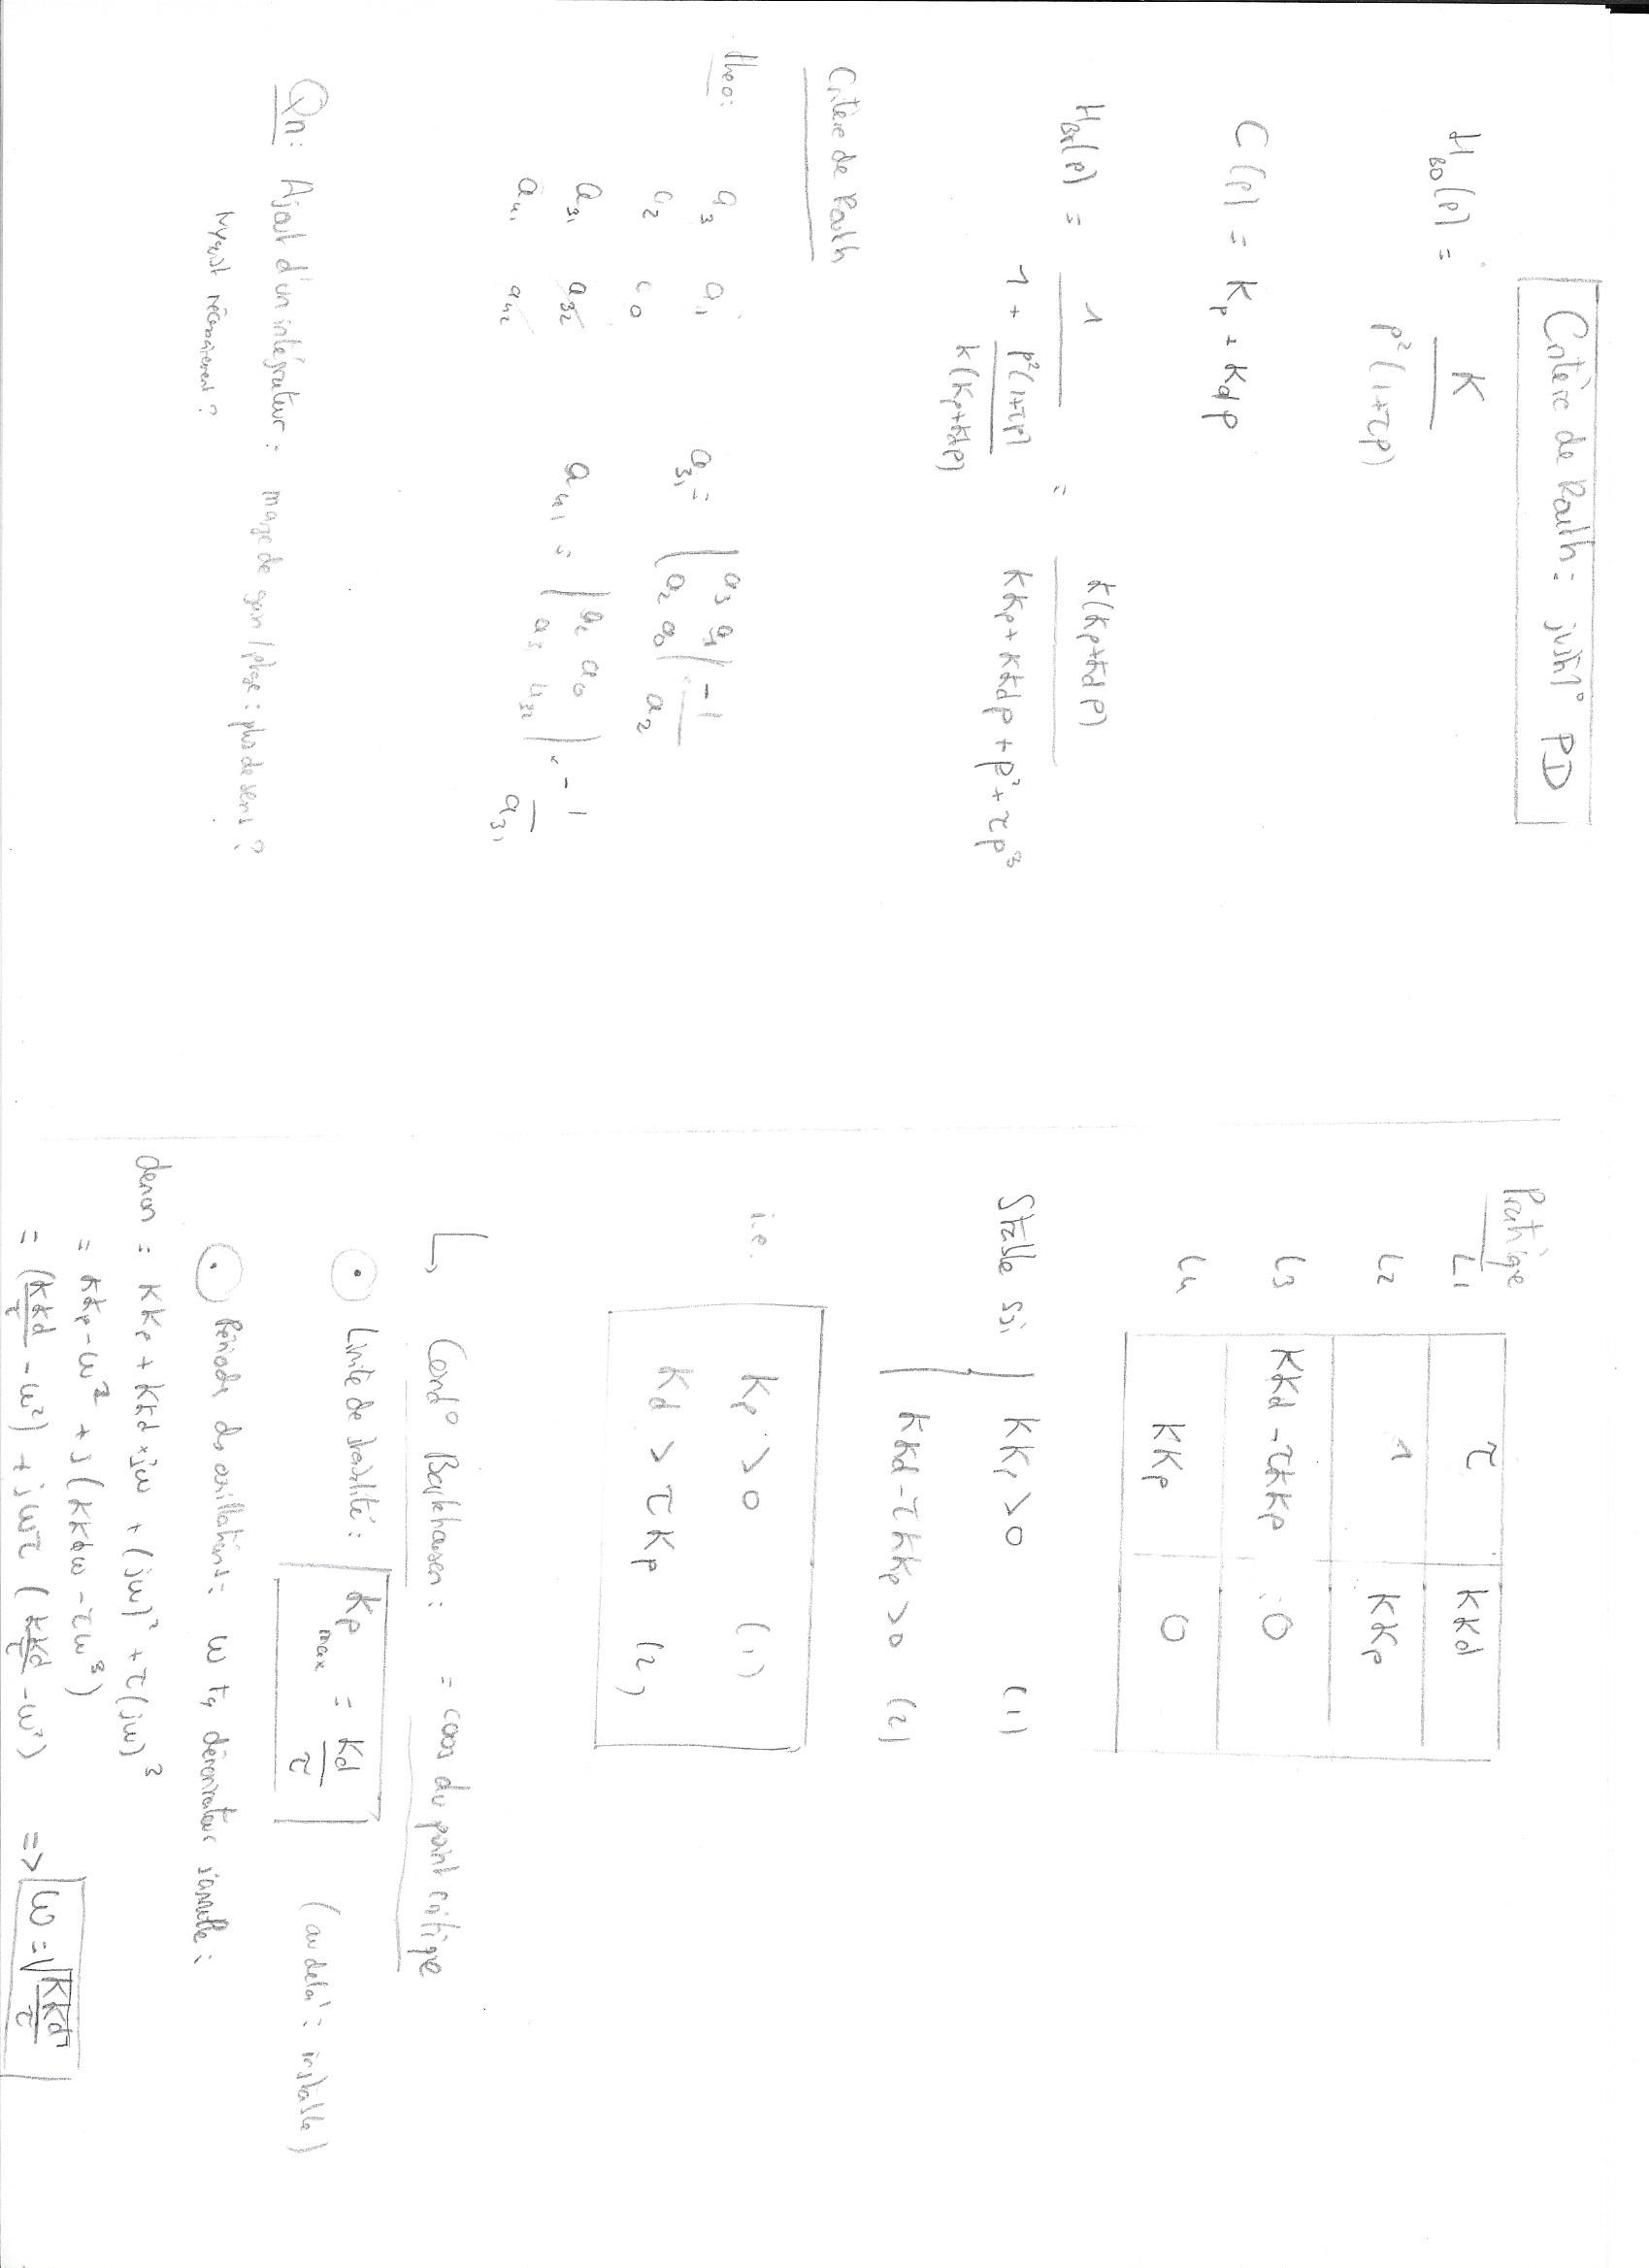 Critère de Routh : justif° PD
H_BO(p) = K / p²(1+τp)
C(p) = Kp + Kd p
H_BF(p) = 1 / (1 + p²(1+τp) / K(Kp+Kdp)) = K(Kp+Kdp) / (KKp + KKdp + p² + τp³)
Critère de Routh
theo:
a3 a1
a2 a0
a31 a32
a41 a42
a31 = | a3 a1 | a2 a0 | . -1 / a2
a41 = | a2 a0 | a31 a32 | . -1 / a31
Qn: Ajout d'un intégrateur : marge de gain / phase : plus de sens ?
Nyquist nécessairement ?
Pratique
L1 τ KKd
L2 1 KKp
L3 KKd - τKKp 0
L4 KKp 0
Stable ssi { KKp > 0 (1)
KKd - τKKp > 0 (2)
i.e. Kp > 0 (1)
Kd > τKp (2)
↳ Cond° Barkhausen : = cas du point critique
⊙ Limite de stabilité : Kp max = Kd / τ (au delà : instable)
⊙ Période des oscillations : ω tq dénominateur s'annule :
denom = KKp + KKd × jω + (jω)² + τ(jω)³
= KKp - ω² + j(KKdω - τω³)
= (KKd/τ - ω²) + jωτ (KKd/τ - ω²) => ω = √(KKd/τ)